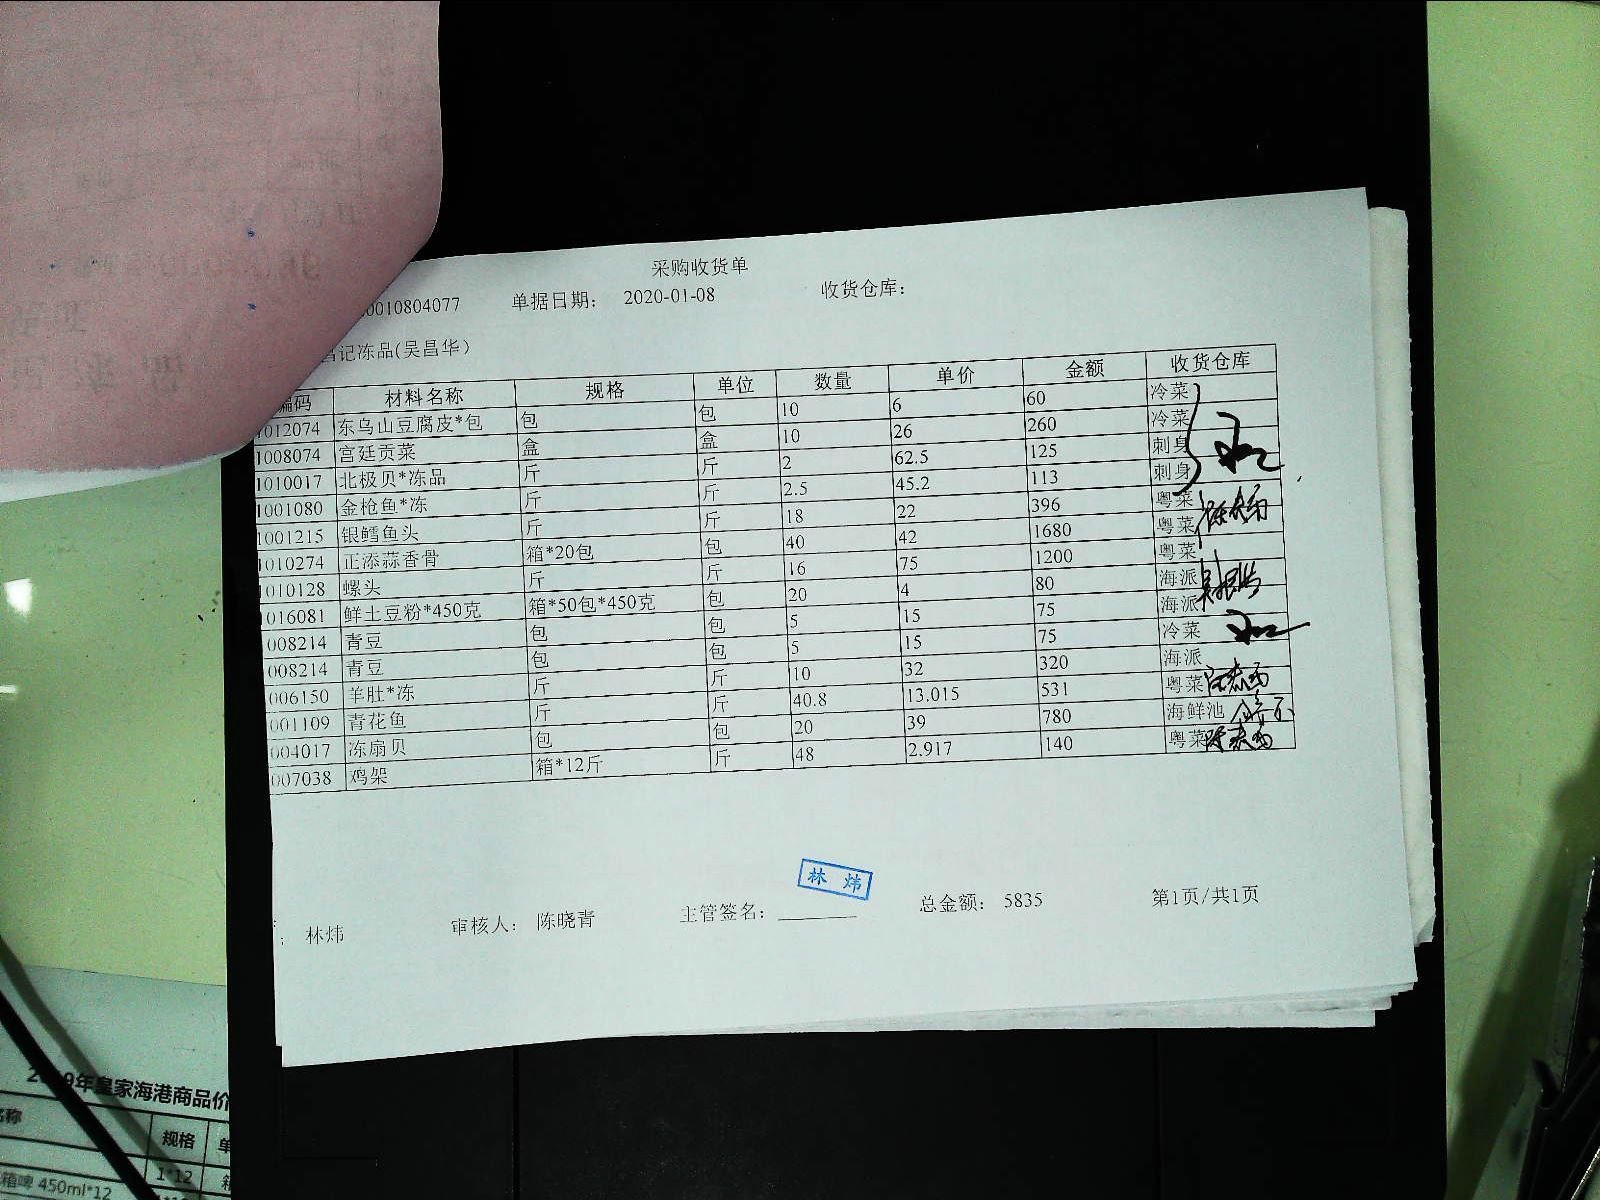 采购收货单
0010804077 单据日期： 2020-01-08 收货仓库：
昌记冻品(吴昌华)
编码 材料名称 规格 单位 数量 单价 金额 收货仓库
1012074 东乌山豆腐皮*包 包 包 10 6 60 冷菜
1008074 宫廷贡菜 盒 盒 10 26 260 冷菜
1010017 北极贝*冻品 斤 斤 2 62.5 125 刺身
1001080 金枪鱼*冻 斤 斤 2.5 45.2 113 刺身
1001215 银鳕鱼头 斤 斤 18 22 396 粤菜
1010274 正添蒜香骨 箱*20包 包 40 42 1680 粤菜
1010128 螺头 斤 斤 16 75 1200 粤菜
1016081 鲜土豆粉*450克 箱*50包*450克 包 20 4 80 海派
008214 青豆 包 包 5 15 75 海派
008214 青豆 包 包 5 15 75 冷菜
006150 羊肚*冻 斤 斤 10 32 320 海派
001109 青花鱼 斤 斤 40.8 13.015 531 粤菜
004017 冻扇贝 包 包 20 39 780 海鲜池
007038 鸡架 箱*12斤 斤 48 2.917 140 粤菜
林炜
： 林炜 审核人： 陈晓青 主管签名： 总金额： 5835 第1页/共1页
9年皇家海港商品价
名称 规格 单
箱啤 450ml*12 1*12 箱